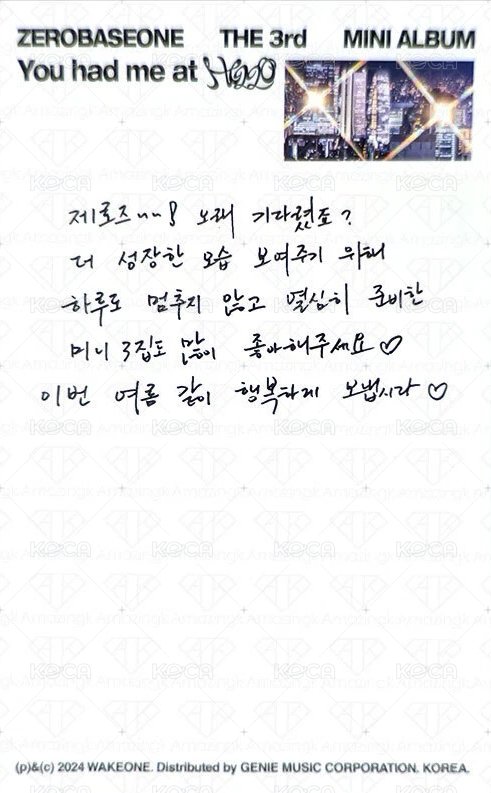 ZEROBASEONE THE 3rd MINI ALBUM
You had me at Hello
제로즈~~! 오래 기다렸죠?
더 성장한 모습 보여주기 위해
하루도 멈추지 않고 열심히 준비한
미니 3집도 많이 좋아해주세요♡
이번 여름 같이 행복하게 보냅시다♡
(p)&(c) 2024 WAKEONE. Distributed by GENIE MUSIC CORPORATION. KOREA.
KOCA
Amazingk